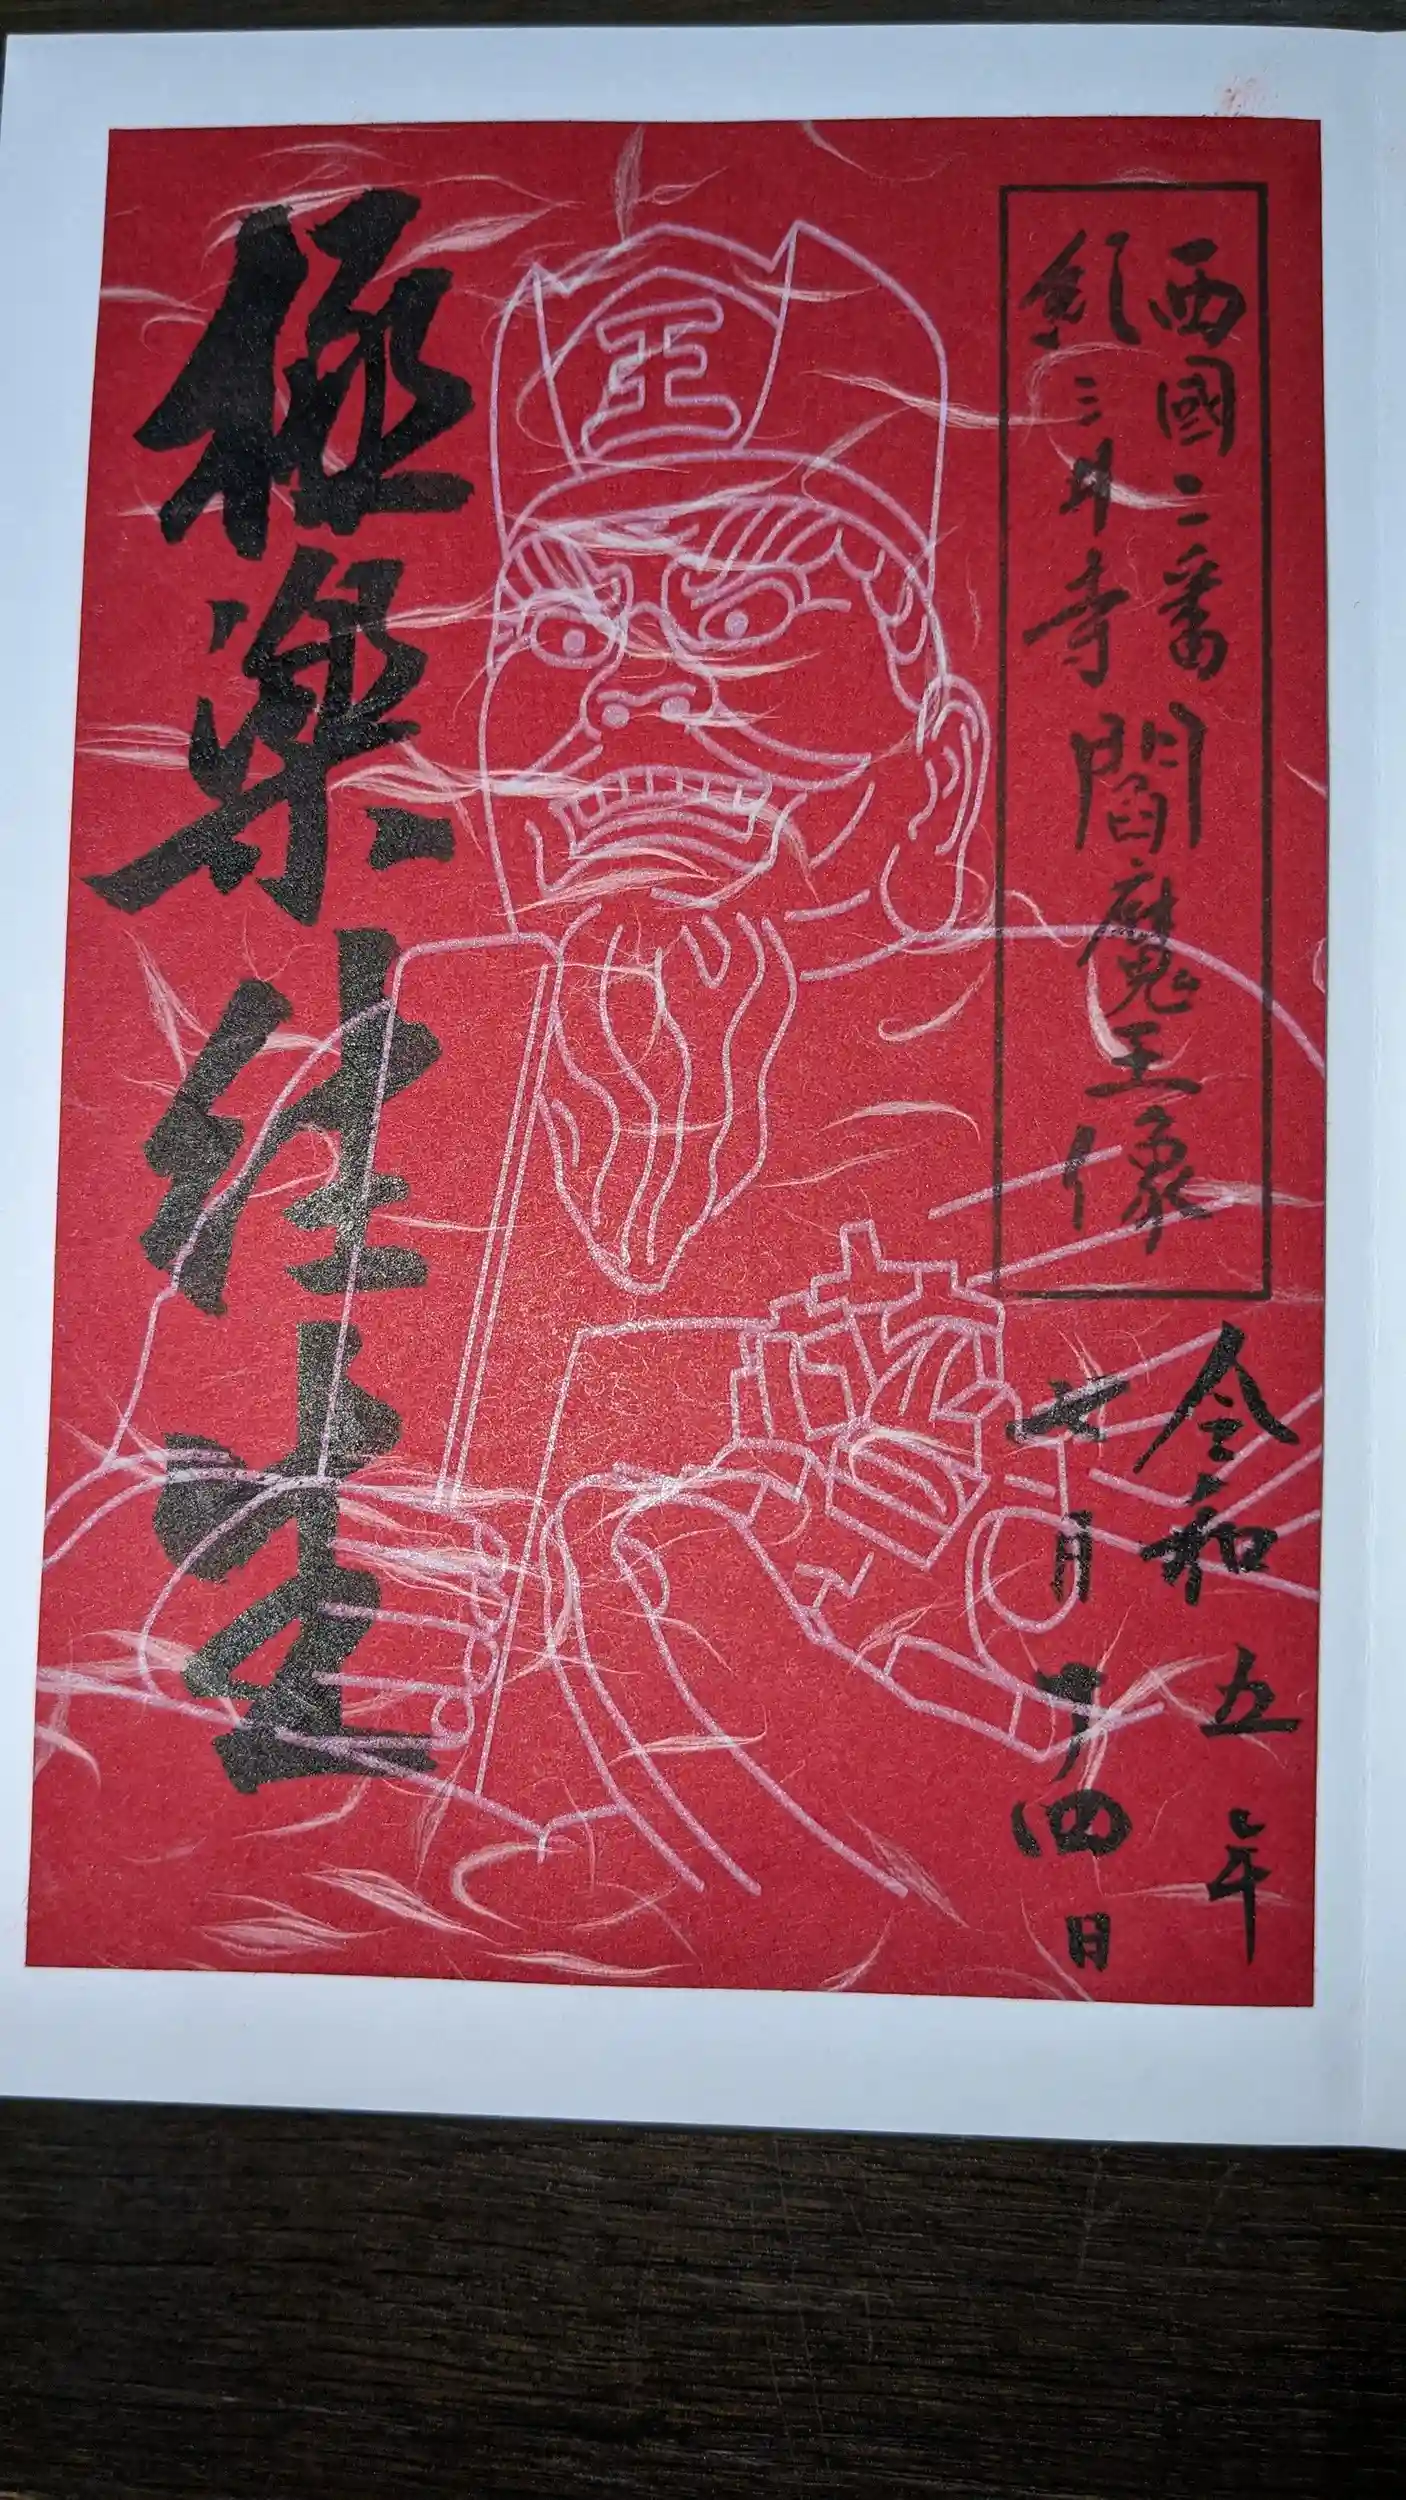 西國二番
紀三井寺
閻魔王像
令和五年
七月廿四日
王
極楽往生